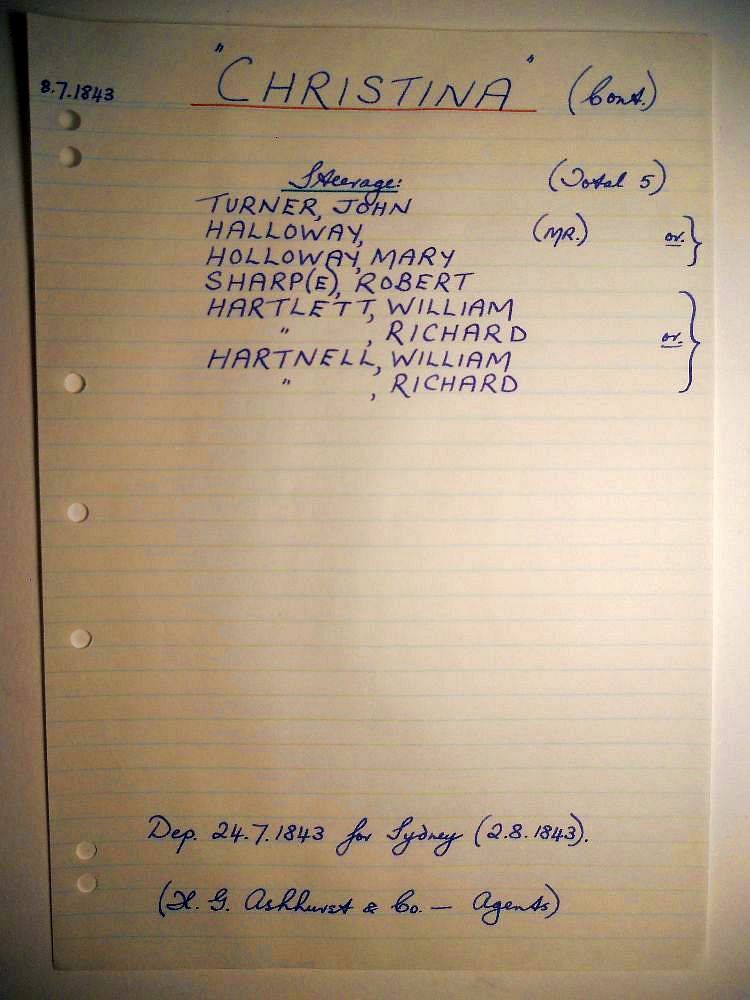 8.7.1843 "CHRISTINA" (Cont.)
Steerage: (Total 5)
TURNER, JOHN
HALLOWAY, (MR.) or.
HOLLOWAY, MARY
SHARP(E), ROBERT
HARTLETT, WILLIAM
" , RICHARD or.
HARTNELL, WILLIAM
" , RICHARD
Dep. 24.7.1843 for Sydney (2.8.1843).
(H. G. Ashhurst & Co. — Agents)